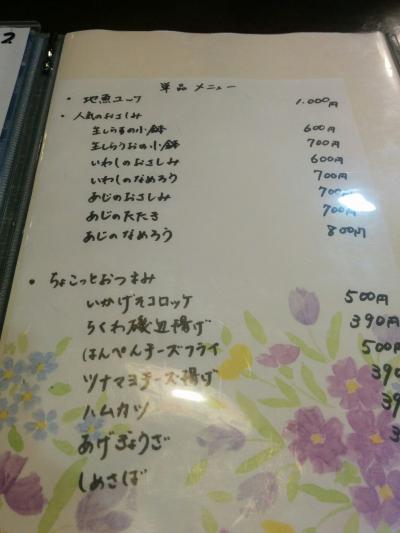 2.
単品メニュー
・地魚ユッケ 1.000円
・人気のおさしみ
生しらすの小鉢 600円
生しらうおの小鉢 700円
いわしのおさしみ 600円
いわしのなめろう 700円
あじのおさしみ 700円
あじのたたき 700円
あじのなめろう 800円
・ちょこっとおつまみ
いかげそコロッケ 500円
ちくわ磯辺揚げ 390円
はんぺんチーズフライ 500円
ツナマヨチーズ揚げ 390
ハムカツ 39
あげぎょうざ 3
しめさば